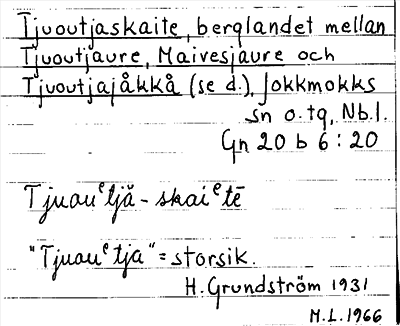 Tjuoutjaskaite, berglandet mellan
Tjuoutjaure, Maivesjaure och
Tjuoutjajåkkå (se d.), Jokkmokks
sn o. tg, Nb.l.
Gn 20 b 6 : 20
Tjuauᵉtjă - skaiᵉtē
"Tjuauᵉtja" = storsik.
H. Grundström 1931
M.L. 1966